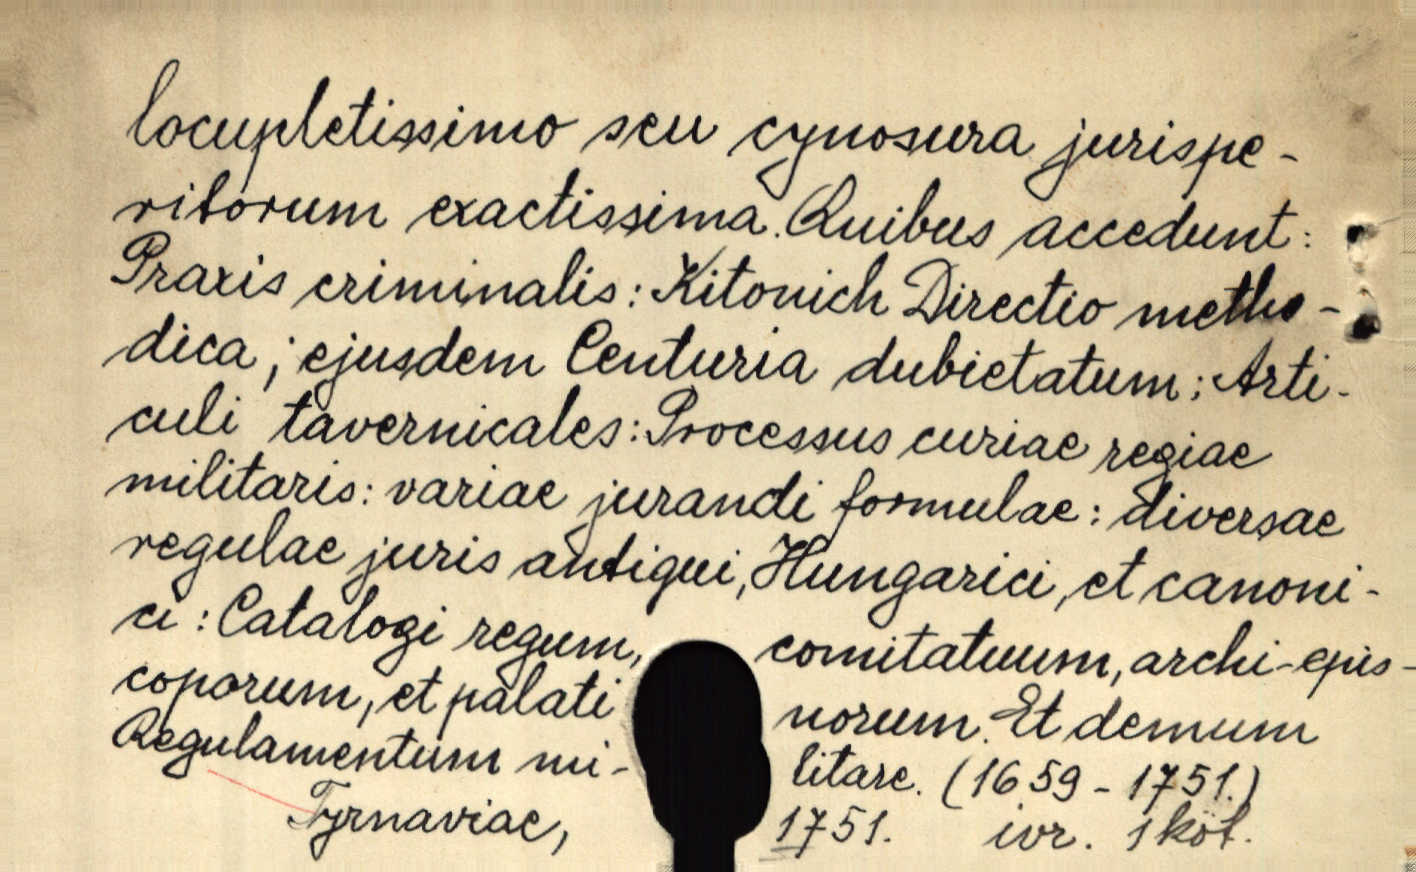 locupletissimo seu cynosura jurispe-
ritorum exactissima. Quibus accedunt:
Praxis criminalis: Kitonich Directio metho-
dica; ejusdem Centuria dubietatum; Arti-
culi tavernicales: Processus curiae regiae
militaris: variae jurandi formulae: diversae
regulae juris antiqui, Hungarici, et canoni-
ci: Catalogi regum, comitatuum, archi-epis-
coporum, et palati norum. Et demum
Regulamentum mi- litare. (1659-1751.)
Tyrnaviae, 1751. ivr. 1 köt.